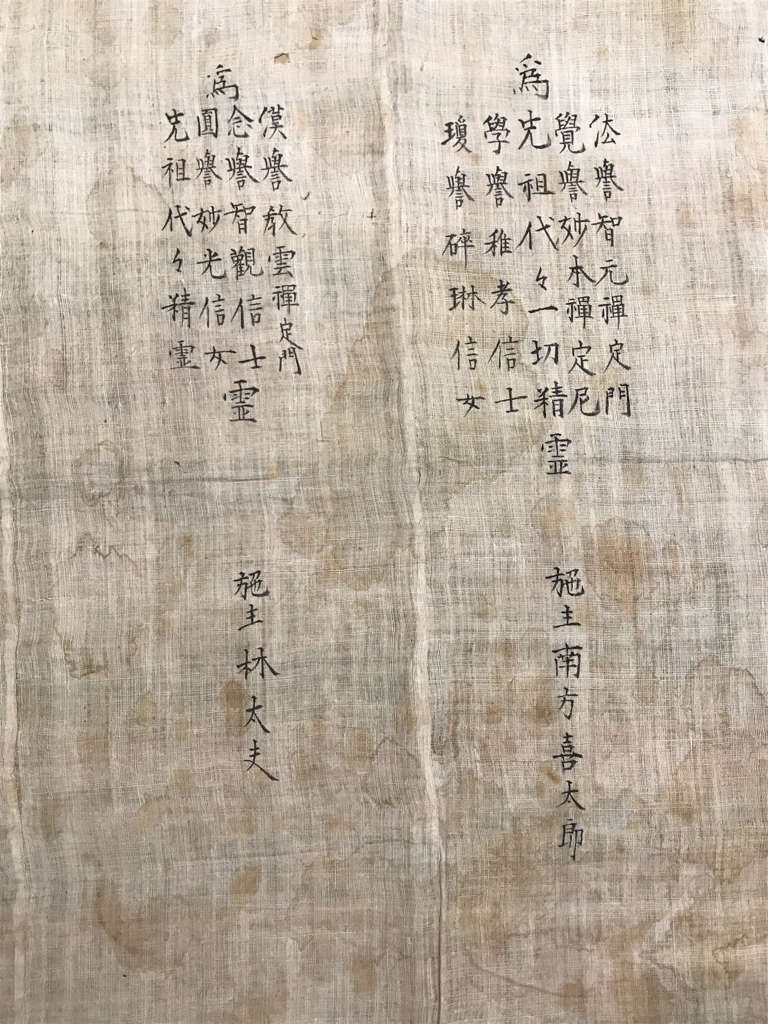 為
法譽智元禪定門
覺譽妙本禪定尼
先祖代々一切精
學譽稚孝信士
瓊譽碎琳信女
霊
施主南方喜太郎
為
漢譽教雲禪定門
念譽智觀信士
圓譽妙光信女
先祖代々精霊
霊
施主林太夫